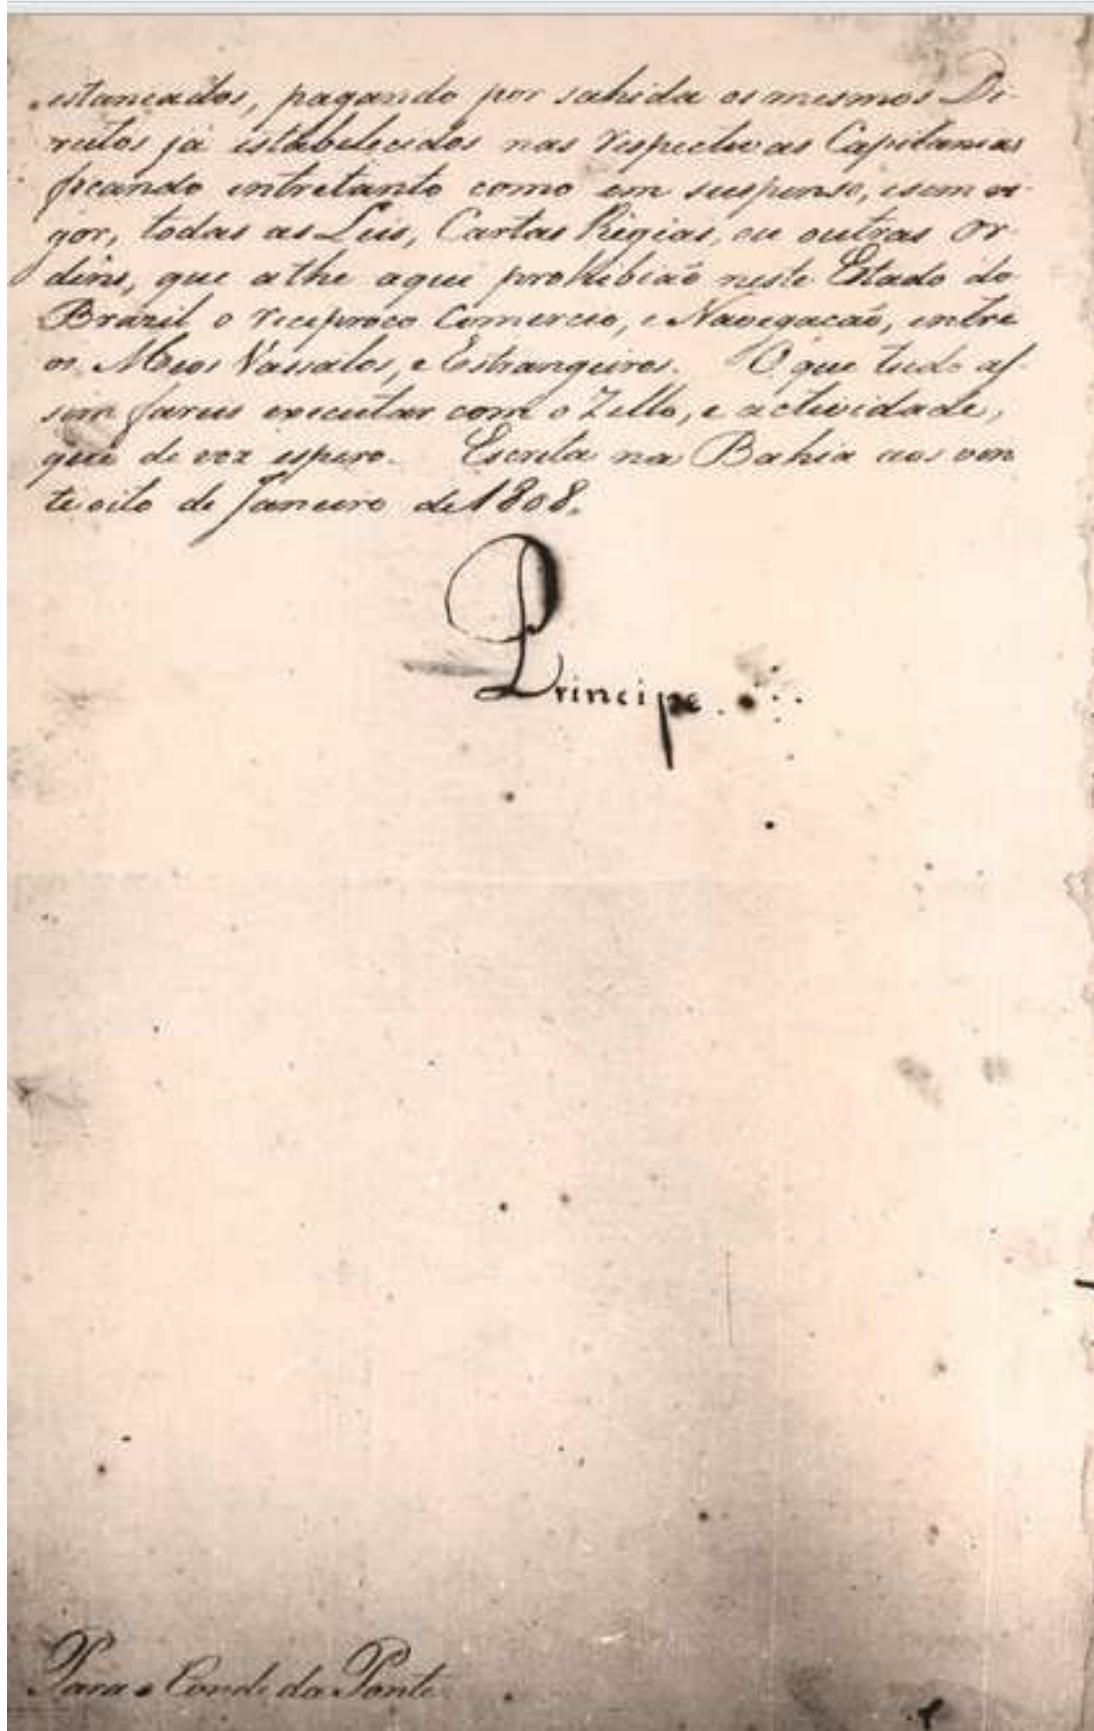 estancados, pagando por sahida os mesmos Di-
reitos já estabelecidos nas respectivas Capitanias
ficando entretanto como em suspenso, e sem vi-
gor, todas as Leis, Cartas Regias, ou outras Or-
dens, que athe aqui prohibiaõ neste Estado do
Brazil o reciproco Comercio, e Navegacaõ, entre
os Meos Vassalos, e Estrangeiros. O que tudo as-
sim fareis executar com o Zello, e actividade,
que de voz espero. Escrita na Bahia aos vin
te oito de Janeiro de 1808.
Principe.
Para o Conde da Ponte.